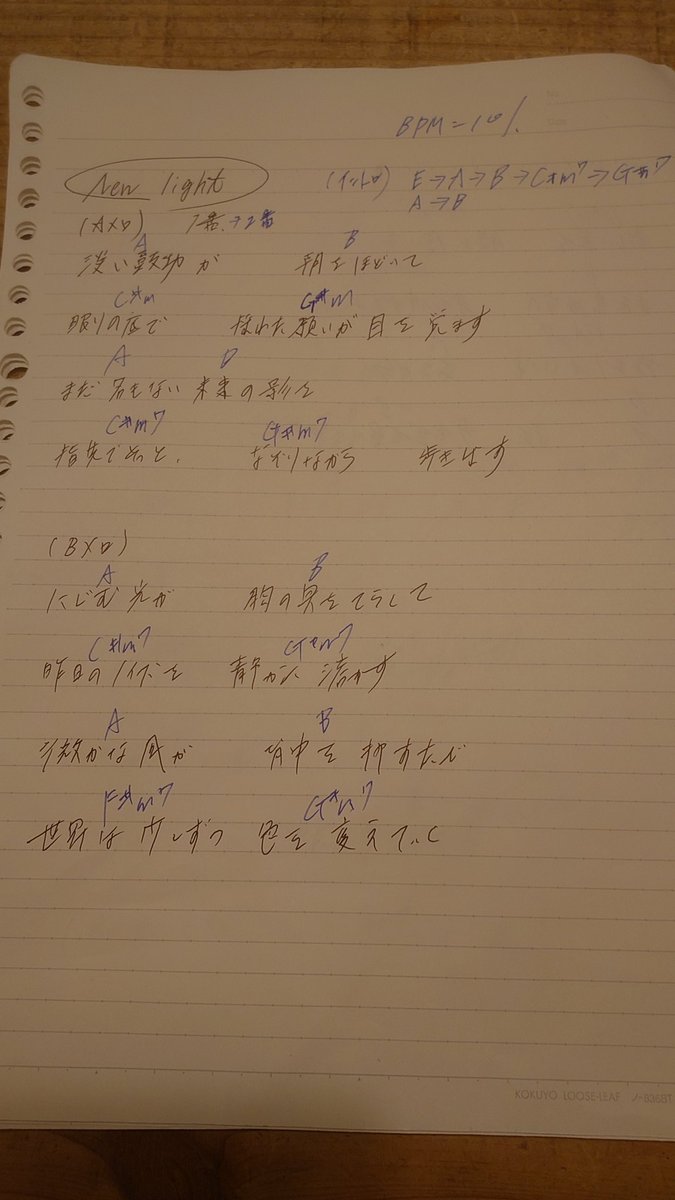 BPM=10
New light
(イントロ) E→A→B→C#m7→G#m7
A→B
(Aメロ) 1番→2番
A B
淡い鼓動が 朝をほどいて
C#m G#m
眠りの底で 揺れた願いが目を覚ます
A
まだ名もない未来の影を
C#m7 G#m7
指先でそっと、 なぞりながら 歩き出す
(Bメロ)
A B
にじむ光が 胸の奥をてらして
C#m7 G#m7
昨日の 静かに溶かす
A B
かな風が 背中を押すたび
F#m7 G#m7
世界は少しずつ 色を変えていく
KOKUYO LOOSE-LEAF ノ-836BT